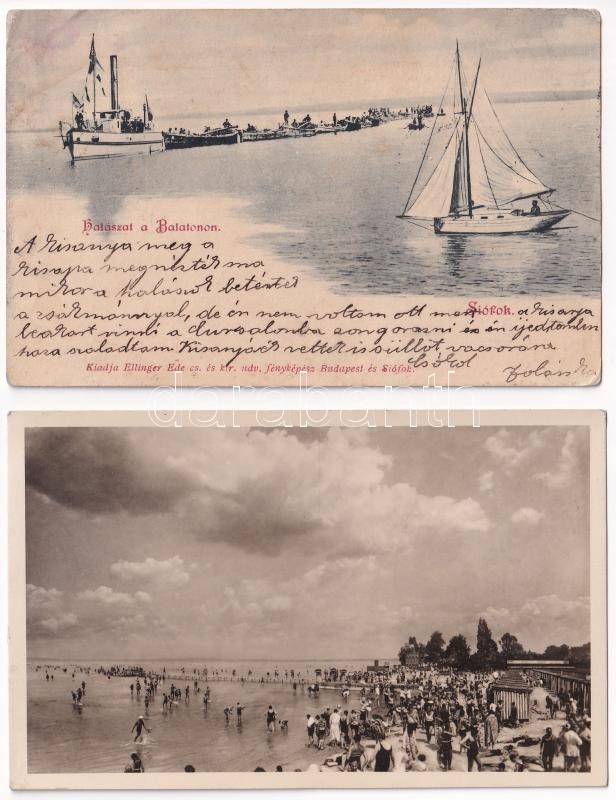 Halászat a Balatonon.
A kisanya meg a
kisapa megnézték ma
mikor a halások betértek
a zsákmánnyal, de én nem voltam ott mert
Siófok.
a kisanya
be akart vinni a Cursalonba zongorazni és én ijedtemben
haza szaladtam Kisanyáék vettek is süllőt vacsorára
Kiadja Ellinger Ede cs. és kir. udv. fényképész Budapest és Siófok.
Csókol
darabanth